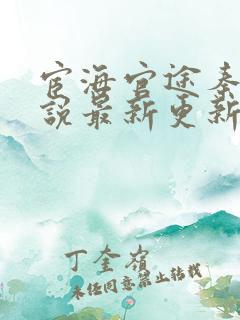 宦海官途秦
说最新更新
丁奎岭
未经同意禁止转载